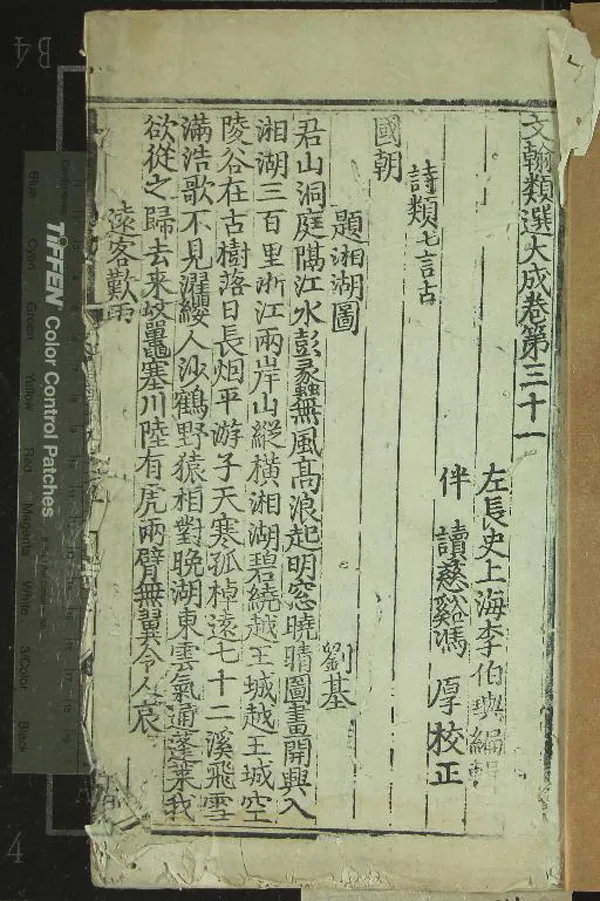 文翰類選大成卷第三十一
左長史上海李伯璵編輯
伴讀慈谿馮厚校正
詩類七言古
國朝
題湘湖圖
劉基
君山洞庭隔江水彭蠡無風高浪起明窓曉晴圖畫開興入
湘湖三百里浙江兩岸山縱橫湘湖碧繞越王城越王城空
陵谷在古樹落日長烟平游子天寒孤棹遠七十二溪飛雪
滿浩歌不見濯纓人沙鶴野猿相對晚湖東雲氣通蓬萊我
欲從之歸去來蛟鼉塞川陸有虎兩臂無翼令人哀
遠客歎雨
TIFFEN Color Control Patches
Blue
Cyan
Green
Yellow
Red
Magenta
White
3/Color
Black
B4
4